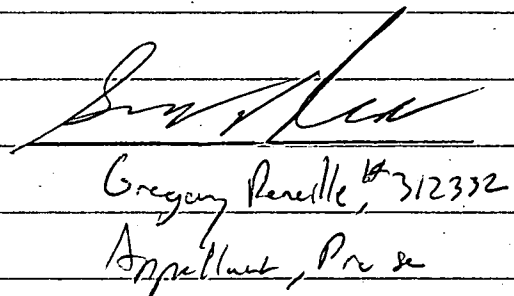 Gregory Reneille, #312332
Appellant, Pro se